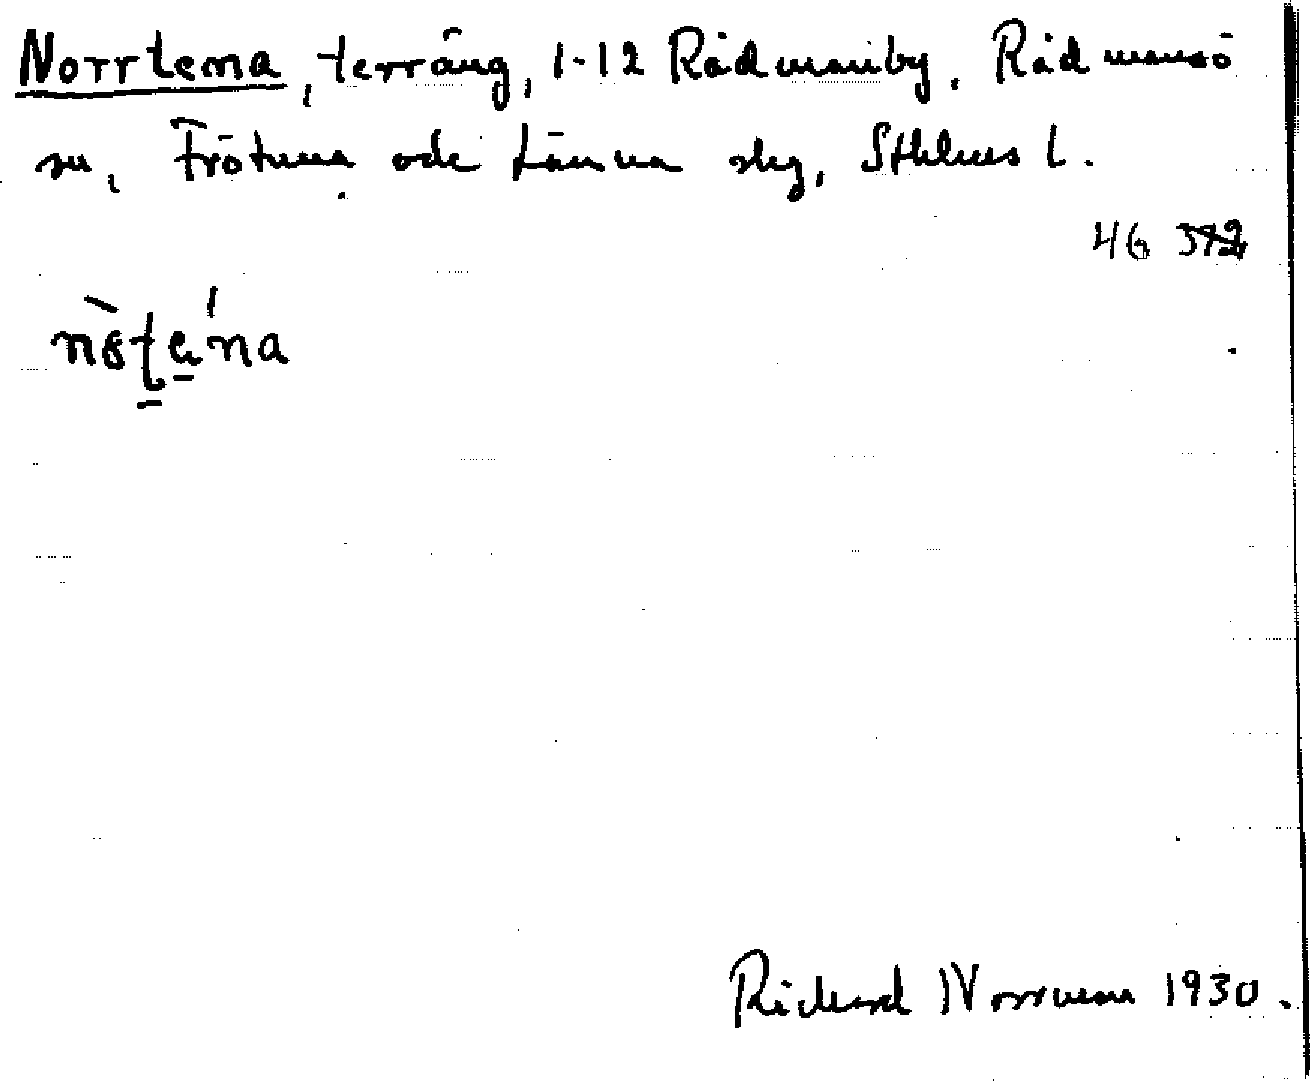 Norrtema, terräng, 1-12 Rådmanby. Rådmansö
sn, Frötuna och Länna slg, Sthlms l.
4G
Richard Norrman 1930.